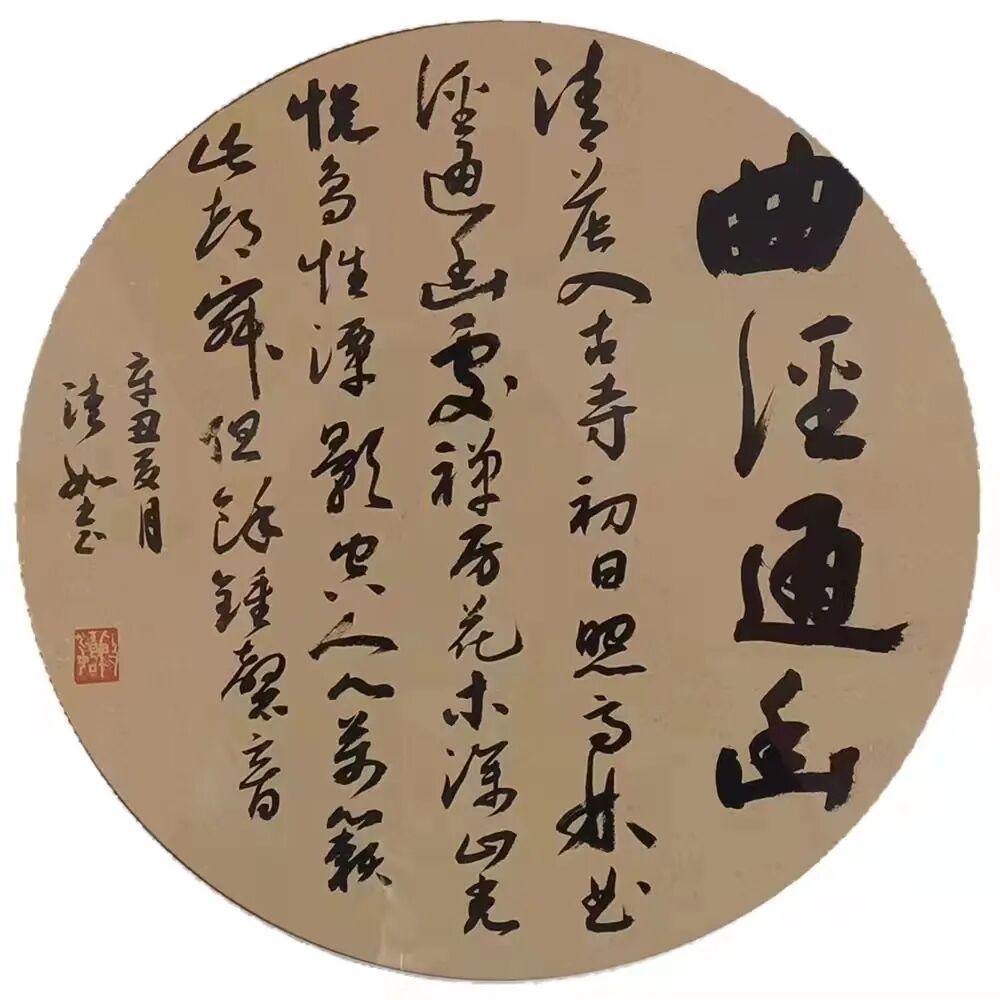 曲径通幽
清晨入古寺初日照高林曲
径通幽处禅房花木深山光
悦鸟性潭影空人心万籁
此都寂但余钟磬音
辛丑夏月